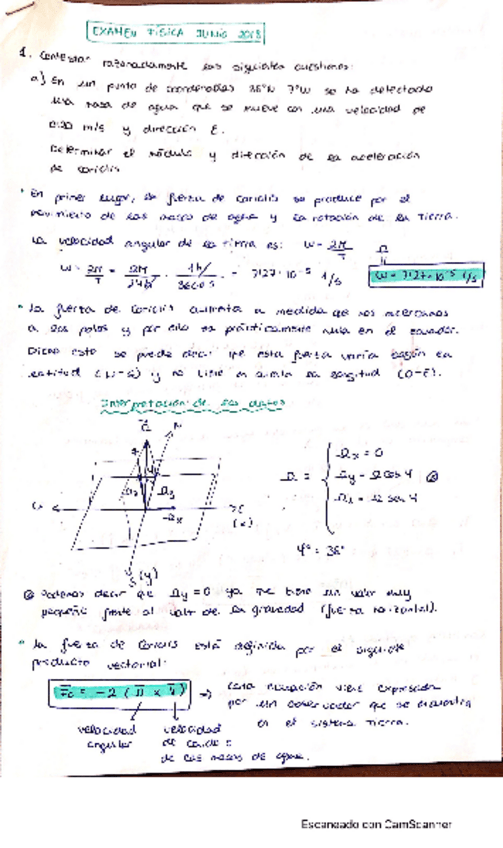 EXAMEN FÍSICA JUNIO 2018
1. Contestar razonadamente las siguientes cuestiones:
a) En un punto de coordenadas 38°N 7°W se ha detectado
una masa de agua que se mueve con una velocidad de
0.20 m/s y dirección E.
Determinar el módulo y dirección de la aceleración
de coriolis
En primer lugar, la fuerza de coriolis se produce por el
movimiento de las masas de agua y la rotación de la Tierra.
La velocidad angular de la tierra es: W = 2π/T
W = 2π/T = 2π/24h · 1h/3600s = 7'27·10⁻⁵ 1/s
W = 7'27·10⁻⁵ 1/s
La fuerza de coriolis aumenta a medida que nos acercamos
a los polos y por ello es prácticamente nula en el ecuador.
Dicho esto se puede decir que esta fuerza varía según la
latitud (N-S) y no tiene en la longitud (O-E).
Interpretación de los datos
Z N
Ωz Ωy
Ωx
(x)
S (y)
Ω = { Ωx = 0
Ωy = Ω cos φ
Ωz = Ω sen φ
φ = 38°
Podemos decir que Ωy = 0 ya que tiene un valor muy
pequeño frente al valor de la gravedad (fuerza horizontal).
La fuerza de coriolis está definida por el siguiente
producto vectorial:
Fc = -2 (Ω x V) → Esta ecuación viene expresada
por un observador que se encuentra
en el sistema Tierra.
velocidad angular
velocidad
de las masas de agua.
Escaneado con CamScanner